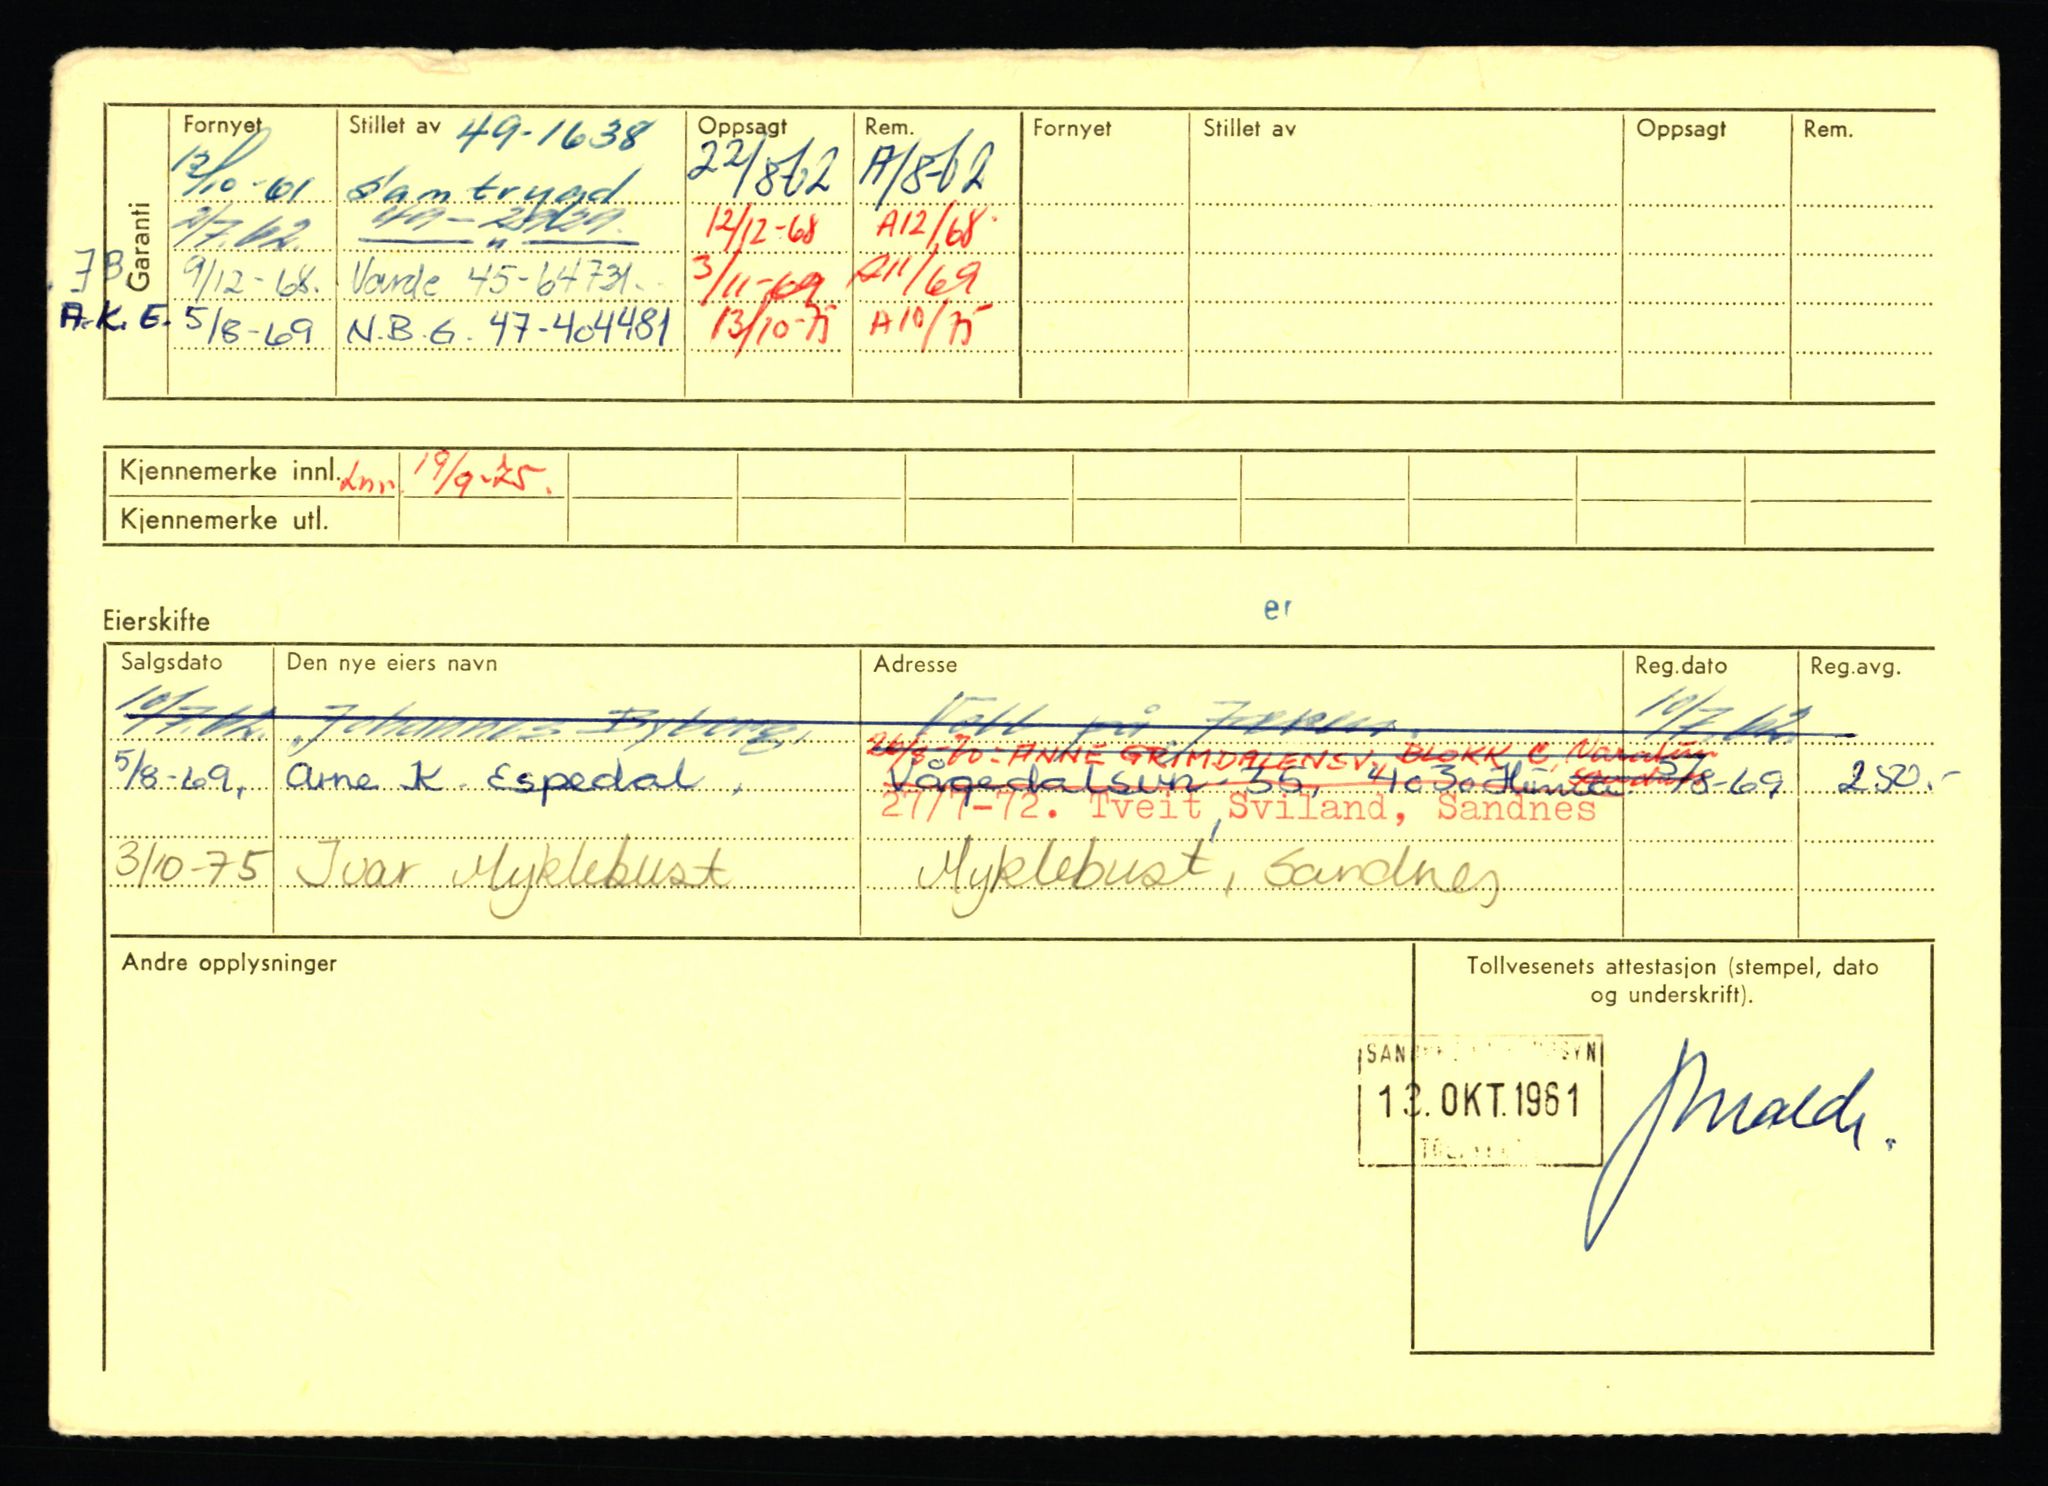 Garanti
Fornyet Stillet av 49-1638 Oppsagt Rem. Fornyet Stillet av Oppsagt Rem.
13/10-61 Samtrygd 22/8-62 A/8-62
2/7.62. 12/12-68 A12/68.
JB 9/12-68. Varde 45-64731. 3/11-69 A11/69
A.K.E. 5/8-69 N.B.G. 47-404481 13/10-75 A10/75
Kjennemerke innl. Inn. 19/9-75.
Kjennemerke utl.
er
Eierskifte
Salgsdato Den nye eiers navn Adresse Reg.dato Reg.avg.
10/7.62. Johannes Byberg, på Jæren. 10/7.62.
26/8-70: ANNE GRIMDALENSV. BLOKK C
5/8-69, Arne K. Espedal, Vågedalsvn 35, 4030 Hinna 5/8-69, 250.-
27/7-72. Tveit, Sviland, Sandnes
3/10-75 Ivar Myklebust Myklebust, Sandnes
Andre opplysninger
Tollvesenets attestasjon (stempel, dato
og underskrift).
13. OKT. 1961